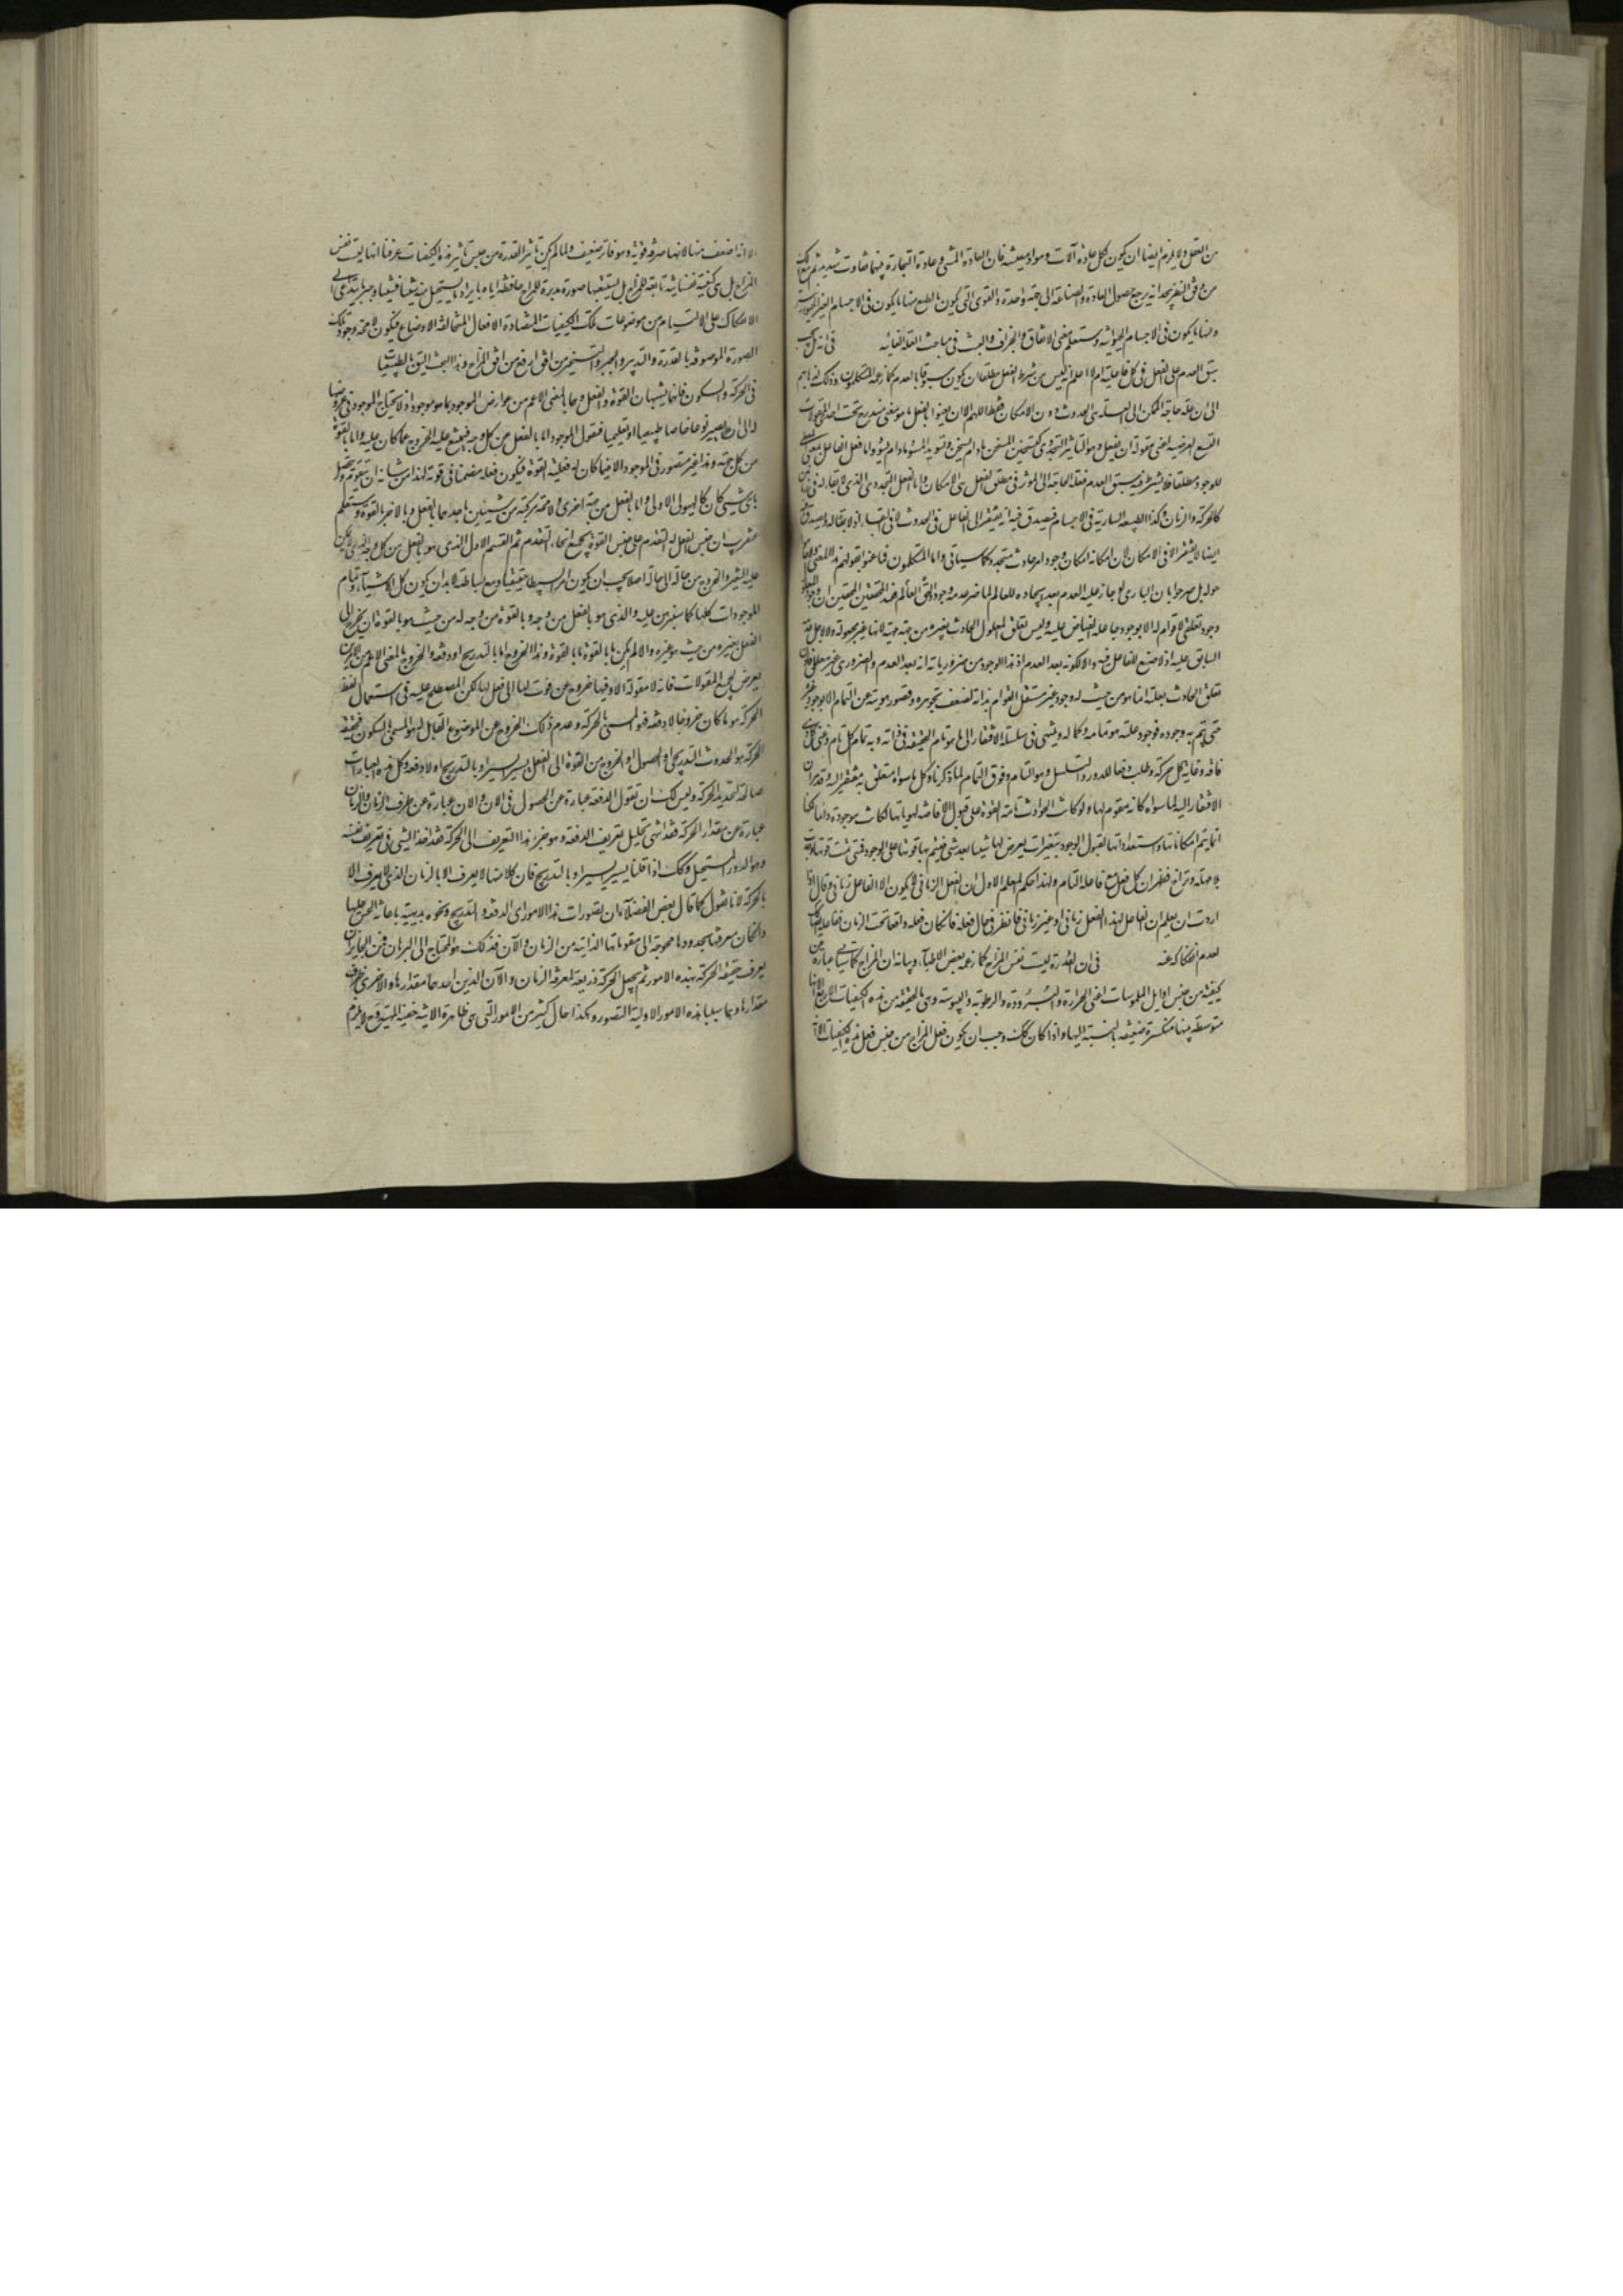 من العقل ولا يلزم ايضا ان يكون لكل عادة آلات ومواد معينة فان العادة المشى وعادة التجارة بينهما تفاوت شديد ثم مع ذلك
من دقق النظر يجد انه يرجع حصول العادة والصناعة الى جهة واحدة والقوى التى يكون بالطبع منها ما يكون فى الاجسام الغير الحيوانية
ومنها ما يكون فى الاجسام الحيوانية وستعلم معنى الاتفاق والجزاف والعبث فى مباحث العلة الغائية فى انه هل يجب
سبق العدم على الفعل فى كل فاعلية ام لا اعلم انه ليس من شرط الفعل مطلقا ان يكون مسبوقا بالعدم كما زعمه المتكلمون وذلك لذهابهم
الى ان علة حاجة الممكن الى العلة هى الحدوث دون الامكان فقط اللهم الا ان يعنوا بالفعل ما هو معنى مندرج تحت احدى المقولات
التسع العرضية اعنى مقولة ان يفعل وهو التأثير التجددى كتسخين المسخن ما دام يسخن وتسويد المسود ما دام يسود واما فعل الفاعل بمعنى المعطى
للوجود مطلقا فلا يشترط فيه سبق العدم فعلة الحاجة الى المؤثر فى مطلق الفعل هى الامكان واما الفعل التجددى الذى لا بقاء له فى زمانين
كالحركة والزمان وكذا الطبيعة السارية فى الاجسام فيصدق فيه انه يفتقر الى الفاعل فى الحدوث لا فى البقاء اذ لا بقاء له ويصدق
ايضا لا يفتقر الا فى الامكان لان امكانه امكان وجود امر حادث متجدد كما سيأتى واما المتكلمون فما عنوا بقولهم هذا المعنى ولا حاموا
حوله بل صرحوا بان البارى لو جاز عليه العدم بعد ايجاده للعالم لما ضر عدمه وجود العالم عند المحققين ان وجود المعلول
وجود تعلقى لا قوام له الا بوجود جاعله الفياض عليه وليس تعلق المعلول الحادث بغيره من جهة ماهيته لانها غير مجعولة ولا لاجل عدمه
السابق عليه اذ لا صنع للفاعل فيه ولا لكونه بعد العدم اذ هذا الوجود من ضرورياته انه بعد العدم والضرورى غير معلل فاذن
تعلق الحادث بعلته انما هو من حيث له وجود غير مستقل القوام بذاته لضعف تجوهره وقصور هويته عن التمام الا بوجود غيره
حتى يتم به وجوده فوجود علته هو تمامه وكماله وينتهى فى سلسلة الافتقار الى ما هو تام الحقيقة فى ذاته وبه تمام كل تام وغنى كل ذى
فاقة وغاية كل حركة وطلب دفعا للدور والتسلسل وهو التام وفوق التمام لما ذكرنا وكل ما سواه متعلق به مفتقر اليه وقد مر ان
الافتقار اليه لما سواه كانه مقوم لها ولو كانت الحوادث تامة القوة على قبول الافاضة لهوياتها لكانت موجودة دائما لكنها
انما يتم امكاناتها واستعداداتها لقبول الوجود بتغيرات يعرض لها شيئا بعد شىء فيتم بها قوتها على الوجود فمتى تمت قوتها وجدت
بلا مهلة وتراخ فظهر ان كل فعل مع فاعله التام ولهذا حكم المعلم الاول ان الفعل الزمانى لا يكون الا لفاعل زمانى وقال اذا
اردت ان تعلم ان الفاعل لهذا الفعل زمانى او غير زمانى فانظر فى حال فعله فان كان فعله واقعا تحت الزمان ففاعله كذلك
لعدم انفكاكه عنه فى ان القدرة ليست نفس المزاج كما زعمه بعض الاطباء وبيانه ان المزاج كما سيأتى عبارة عن
كيفية من جنس اوايل الملموسات اعنى الحرارة والبرودة والرطوبة واليبوسة وهى بالحقيقة من هذه الكيفيات الاربع الا انها
متوسطة بينها منكسرة ضعيفة بالنسبة اليها واذا كان كذلك وجب ان يكون فعل المزاج من جنس فعل هذه الكيفيات الا
الا انه اضعف منها لانها صرفة قوية وهو فاتر ضعيف ولما لم يكن تأثير القدرة من جنس تأثير هذه الكيفيات عرفنا انها ليست نفس
المزاج بل هى كيفية نفسانية تابعة للمزاج بل تستتبعها صورة مدبرة للمزاج حافظة اياه بايراد ما يستحيل منه شيئا فشيئا وجبر ما يتداعى الى
الانفكاك على الالتيام من موضوعات تلك الكيفيات المتضادة الافعال المتخالفة الاوضاع فيكون لا محالة وجود تلك
الصورة الموصوفة بالقدرة والتدبير والجبر والتسخير من افق ارفع من افق المزاج وهذا البحث اليق بالطبيعيات
فى الحركة والسكون فانهما يشبهان القوة والفعل وهما بالمعنى الاعم من عوارض الموجود بما هو موجود اذ لا يحتاج الموجود فى عروضهما
له الى ان يصير نوعا خاصا طبيعيا او تعليميا فنقول الموجود اما بالفعل من كل وجه فيمتنع عليه الخروج عما كان عليه واما بالقوة
من كل جهة وهذا غير متصور فى الموجود الا فيما كان له فعلية القوة فيكون فعله مضمنا فى قوته لهذا من شانه ان يتقوم ويتحصل
باى شىء كان كالهيولى الاولى واما بالفعل من جهة وبالقوة من جهة اخرى ولا محالة مركبة من شيئين باحدهما بالفعل وبالاخر بالقوة وستعلم
عن قريب ان جنس الفعل له التقدم على جنس القوة بجميع انحاء التقدم ثم القسم الاول الذى هو بالفعل من كل وجه الذى لا يمكن
عليه التغير والخروج من حالة الى حالة اصلا يجب ان يكون امرا بسيطا حقيقيا ومع بساطته لا بد ان يكون كل الاشياء وتمام
الموجودات كلها كما سنبرهن عليه والذى هو بالفعل من وجه وبالقوة من وجه له من حيث هو بالقوة ان يخرج الى
الفعل بغيره ومن حيث هو غيره والا لم يكن ما بالقوة ما بالقوة وهذا الخروج اما بالتدريج او دفعة والخروج بالمعنى الاعم من الامرين
يعرض لجميع المقولات فانه لا مقولة الا وفيها خروج عن قوة لها الى فعل لها لكن المصطلح عليه فى استعمال لفظ
الحركة هو ما كان خروجا لا دفعة فهو المسمى بالحركة وعدم ذلك الخروج عن الموضوع القابل له هو المسمى بالسكون فحقيقة
الحركة هو الحدوث التدريجى او الحصول او الخروج من القوة الى الفعل يسيرا يسيرا او بالتدريج او لا دفعة وكل هذه العبارات
صالحة لتحديد الحركة وليس لك ان تقول الدفعة عبارة عن الحصول فى الآن والآن عبارة عن طرف الزمان والزمان
عبارة عن مقدار الحركة فقد انتهى تحليل تعريف الدفعة وهو جزء هذا التعريف الى الحركة فقد اخذ الشىء فى تعريف نفسه
وهو الدور المستحيل وكذلك اذا قلنا يسيرا يسيرا او بالتدريج فان كلا منهما لا يعرف الا بالزمان الذى لا يعرف الا
بالحركة لانا نقول كما قال بعض الفضلاء ان تصورات هذه الامور اى الدفعة والتدريج ونحوه بديهية باعانة الحس عليها
وان كان معرفتها بحدودها محوجة الى مقوماتها الذاتية من الزمان والآن فذلك هو المحتاج الى البرهان فمن الجائز ان
يعرف حقيقة الحركة بهذه الامور ثم يجعل الحركة ذريعة لمعرفة الزمان والآن الذين احدهما مقدارها والاخرى طرف
مقدارها وهما سببا هذه الامور الاولية التصور وهكذا حال كثير من الامور التى هى ظاهرة الانية خفية المهية وح لا يلزم